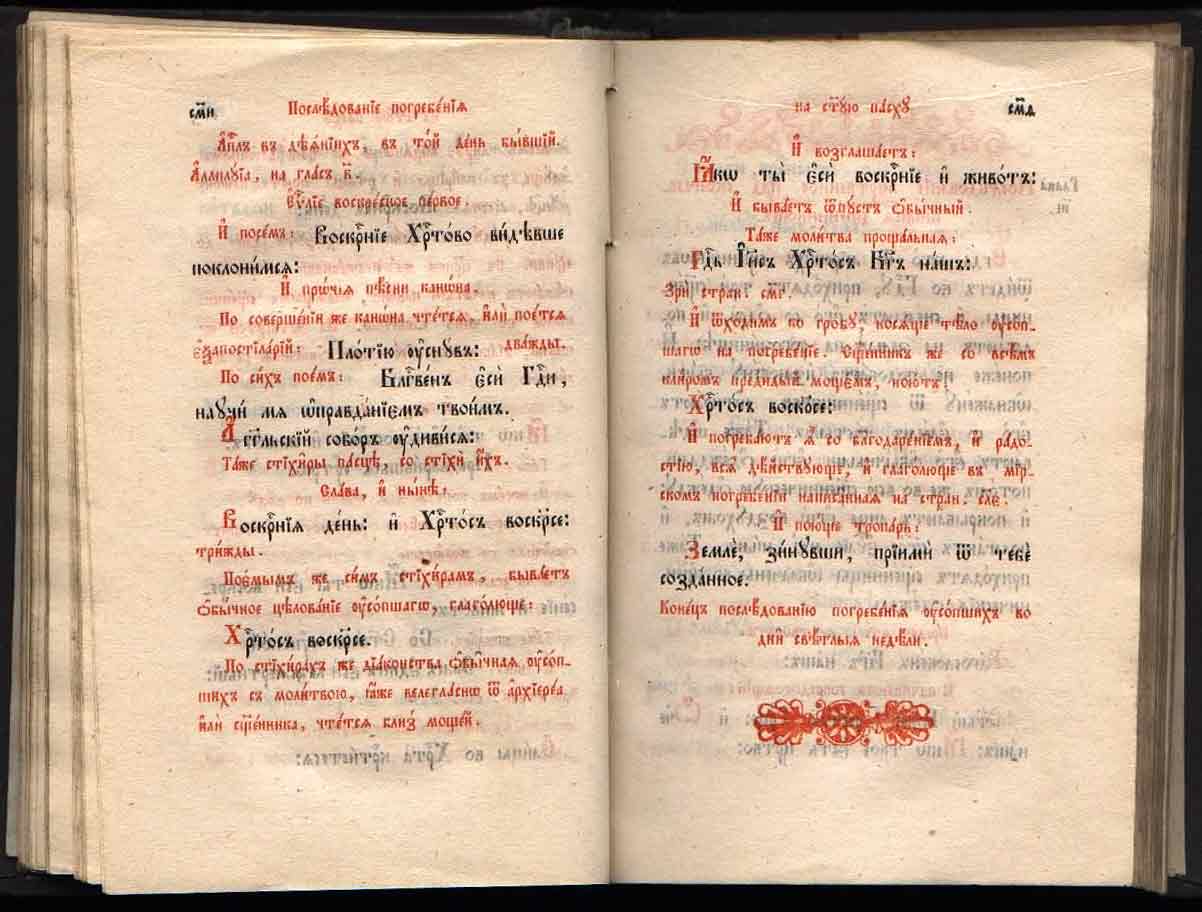 сми҃
Послѣ́дованїе погребе́нїѧ
А҆пⷭ҇лъ въ дѣѧ́нїихъ, въ то́й де́нь бы́вшїй.
А҆ллилꙋ́їа, на гла́съ в҃.
Є҆ѵⷢ҇лїе воскре́сное пе́рвое.
И҆ посе́мъ: Воскрⷭ҇нїе Хрⷭ҇то́во ви́дѣвше
поклони́мсѧ:
И҆ прѡ́чїѧ пѣ̑сни канѡ́на.
По соверше́нїи же канѡ́на чте́тсѧ, и҆лѝ пое́тсѧ
є҆ѯапостїла́рїй: Пло́тїю ᲂу҆снꙋ́въ: два́жды.
По си́хъ пое́мъ: Блгⷭ҇ве́нъ є҆сѝ Гдⷭ҇и,
наꙋчи́ мѧ ѡ҆правда́нїємъ твои̑мъ.
А҆́гг҃льскїй собо́ръ ᲂу҆диви́сѧ:
Та́же стїхи̑ры па́сцѣ, со стїхѝ и҆́хъ.
Сла́ва, и҆ ны́нѣ:
Воскрⷭ҇нїѧ де́нь: и҆ Хрⷭ҇то́съ воскр҃се:
три́жды.
Пое́мымъ же си̑мъ стїхи́рамъ, быва́етъ
ѻ҆бы́чное цѣлова́нїе ᲂу҆со́пшагѡ, глаго́люще:
Хрⷭ҇то́съ воскр҃се.
По стїхи́рахъ же дїа́конства ѻ҆бы̑чнаѧ ᲂу҆со́п-
шихъ съ моли́твою, ꙗ҆́же велегла́снѡ ѿ а҆рхїере́а
и҆лѝ сщ҃е́нника, чте́тсѧ бли́з̾ моще́й.
на ст҃ꙋ́ю па́схꙋ
смѳ҃
И҆ возглаша́етъ:
Ꙗ҆́кѡ ты̀ є҆сѝ воскрⷭ҇нїе и҆ живо́тъ:
И҆ быва́етъ ѿпꙋ́стъ ѻ҆бы́чный.
Та́же моли́тва проща́льнаѧ:
Гдⷭ҇ь І҆и҃съ Хрⷭ҇то́съ Бг҃ъ на́шъ:
Зрѝ стран:
И҆ ѿхо́димъ ко гро́бꙋ, носѧ́ще тѣ́ло ᲂу҆со́п-
шагѡ на погребе́нїе. Сщ҃е́нникъ же со всѣ́мъ
кли́ромъ предиды́й моще́мъ, пою́тъ:
Хрⷭ҇то́съ воскр҃се:
И҆ погреба́ютъ ѧ҆̀ со благодаре́нїемъ, и҆ ра́до-
стїю, всѧ̑ дѣ́йствꙋюще, и҆ глаго́люще въ мїр-
ско́мъ погребе́нїи напи̑саннаѧ на стран.
И҆ пою́ще тропа́рь:
Землѐ, зи́нꙋвши, прїимѝ ѿ тебє̀
созда́нное.
Коне́цъ послѣ́дованїю погребе́нїѧ ᲂу҆со́пшихъ во
дни̑ свѣ́тлыѧ недѣ́ли.